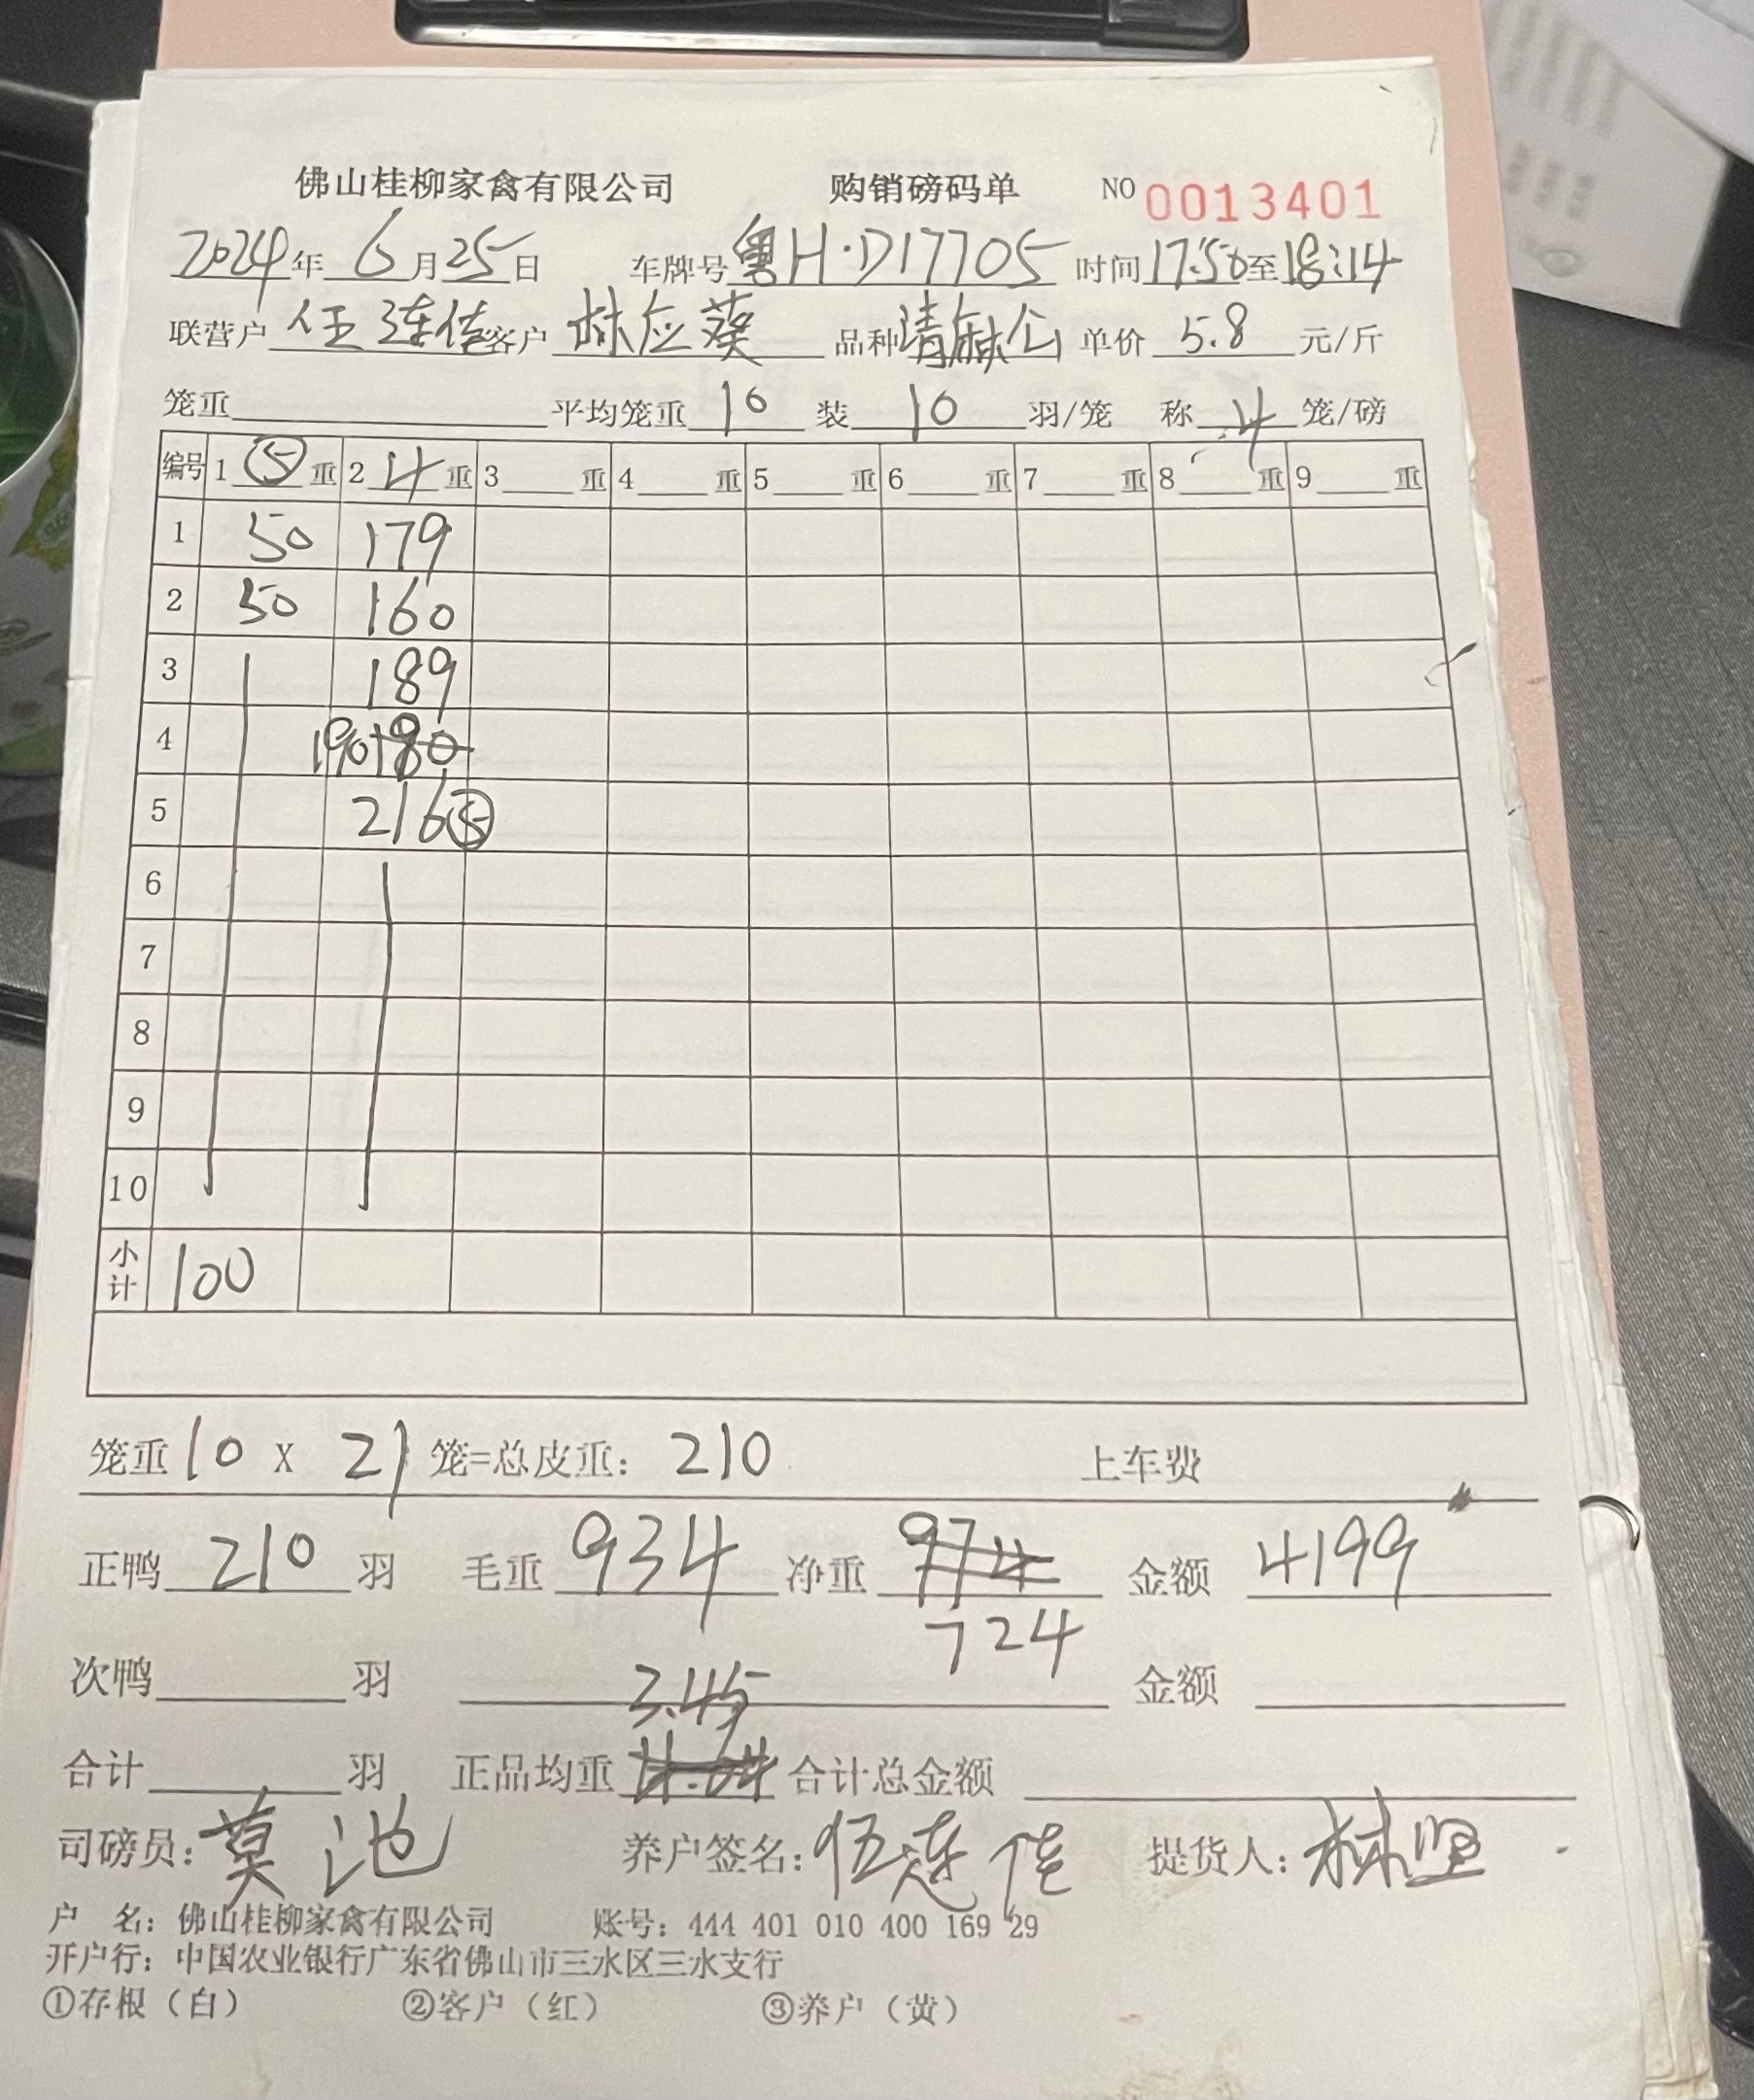 佛山桂柳家禽有限公司 购销磅码单 NO 0013401
2024年 6月25日 车牌号 粤H·D17705 时间17:50至18:14
联营户 伍连佳 客户 林应葵 品种 清麻公 单价 5.8 元/斤
笼重 平均笼重 10 装 10 羽/笼 称 4 笼/磅
编号 1 ⑤ 重 2 4 重 3 重 4 重 5 重 6 重 7 重 8 重 9 重
1 50 179
2 50 160
3 189
4 190 180
5 216⑤
6
7
8
9
10
小计 100
笼重 10 X 21 笼=总皮重: 210 上车费
正鸭 210 羽 毛重 934 净重 974 金额 4199
724
次鸭 羽 3.45 金额
合计 羽 正品均重 4.64 合计总金额
司磅员: 莫池 养户签名: 伍连佳 提货人: 林坚
户 名: 佛山桂柳家禽有限公司 账号: 444 401 010 400 169 29
开户行: 中国农业银行广东省佛山市三水区三水支行
①存根（白） ②客户（红） ③养户（黄）